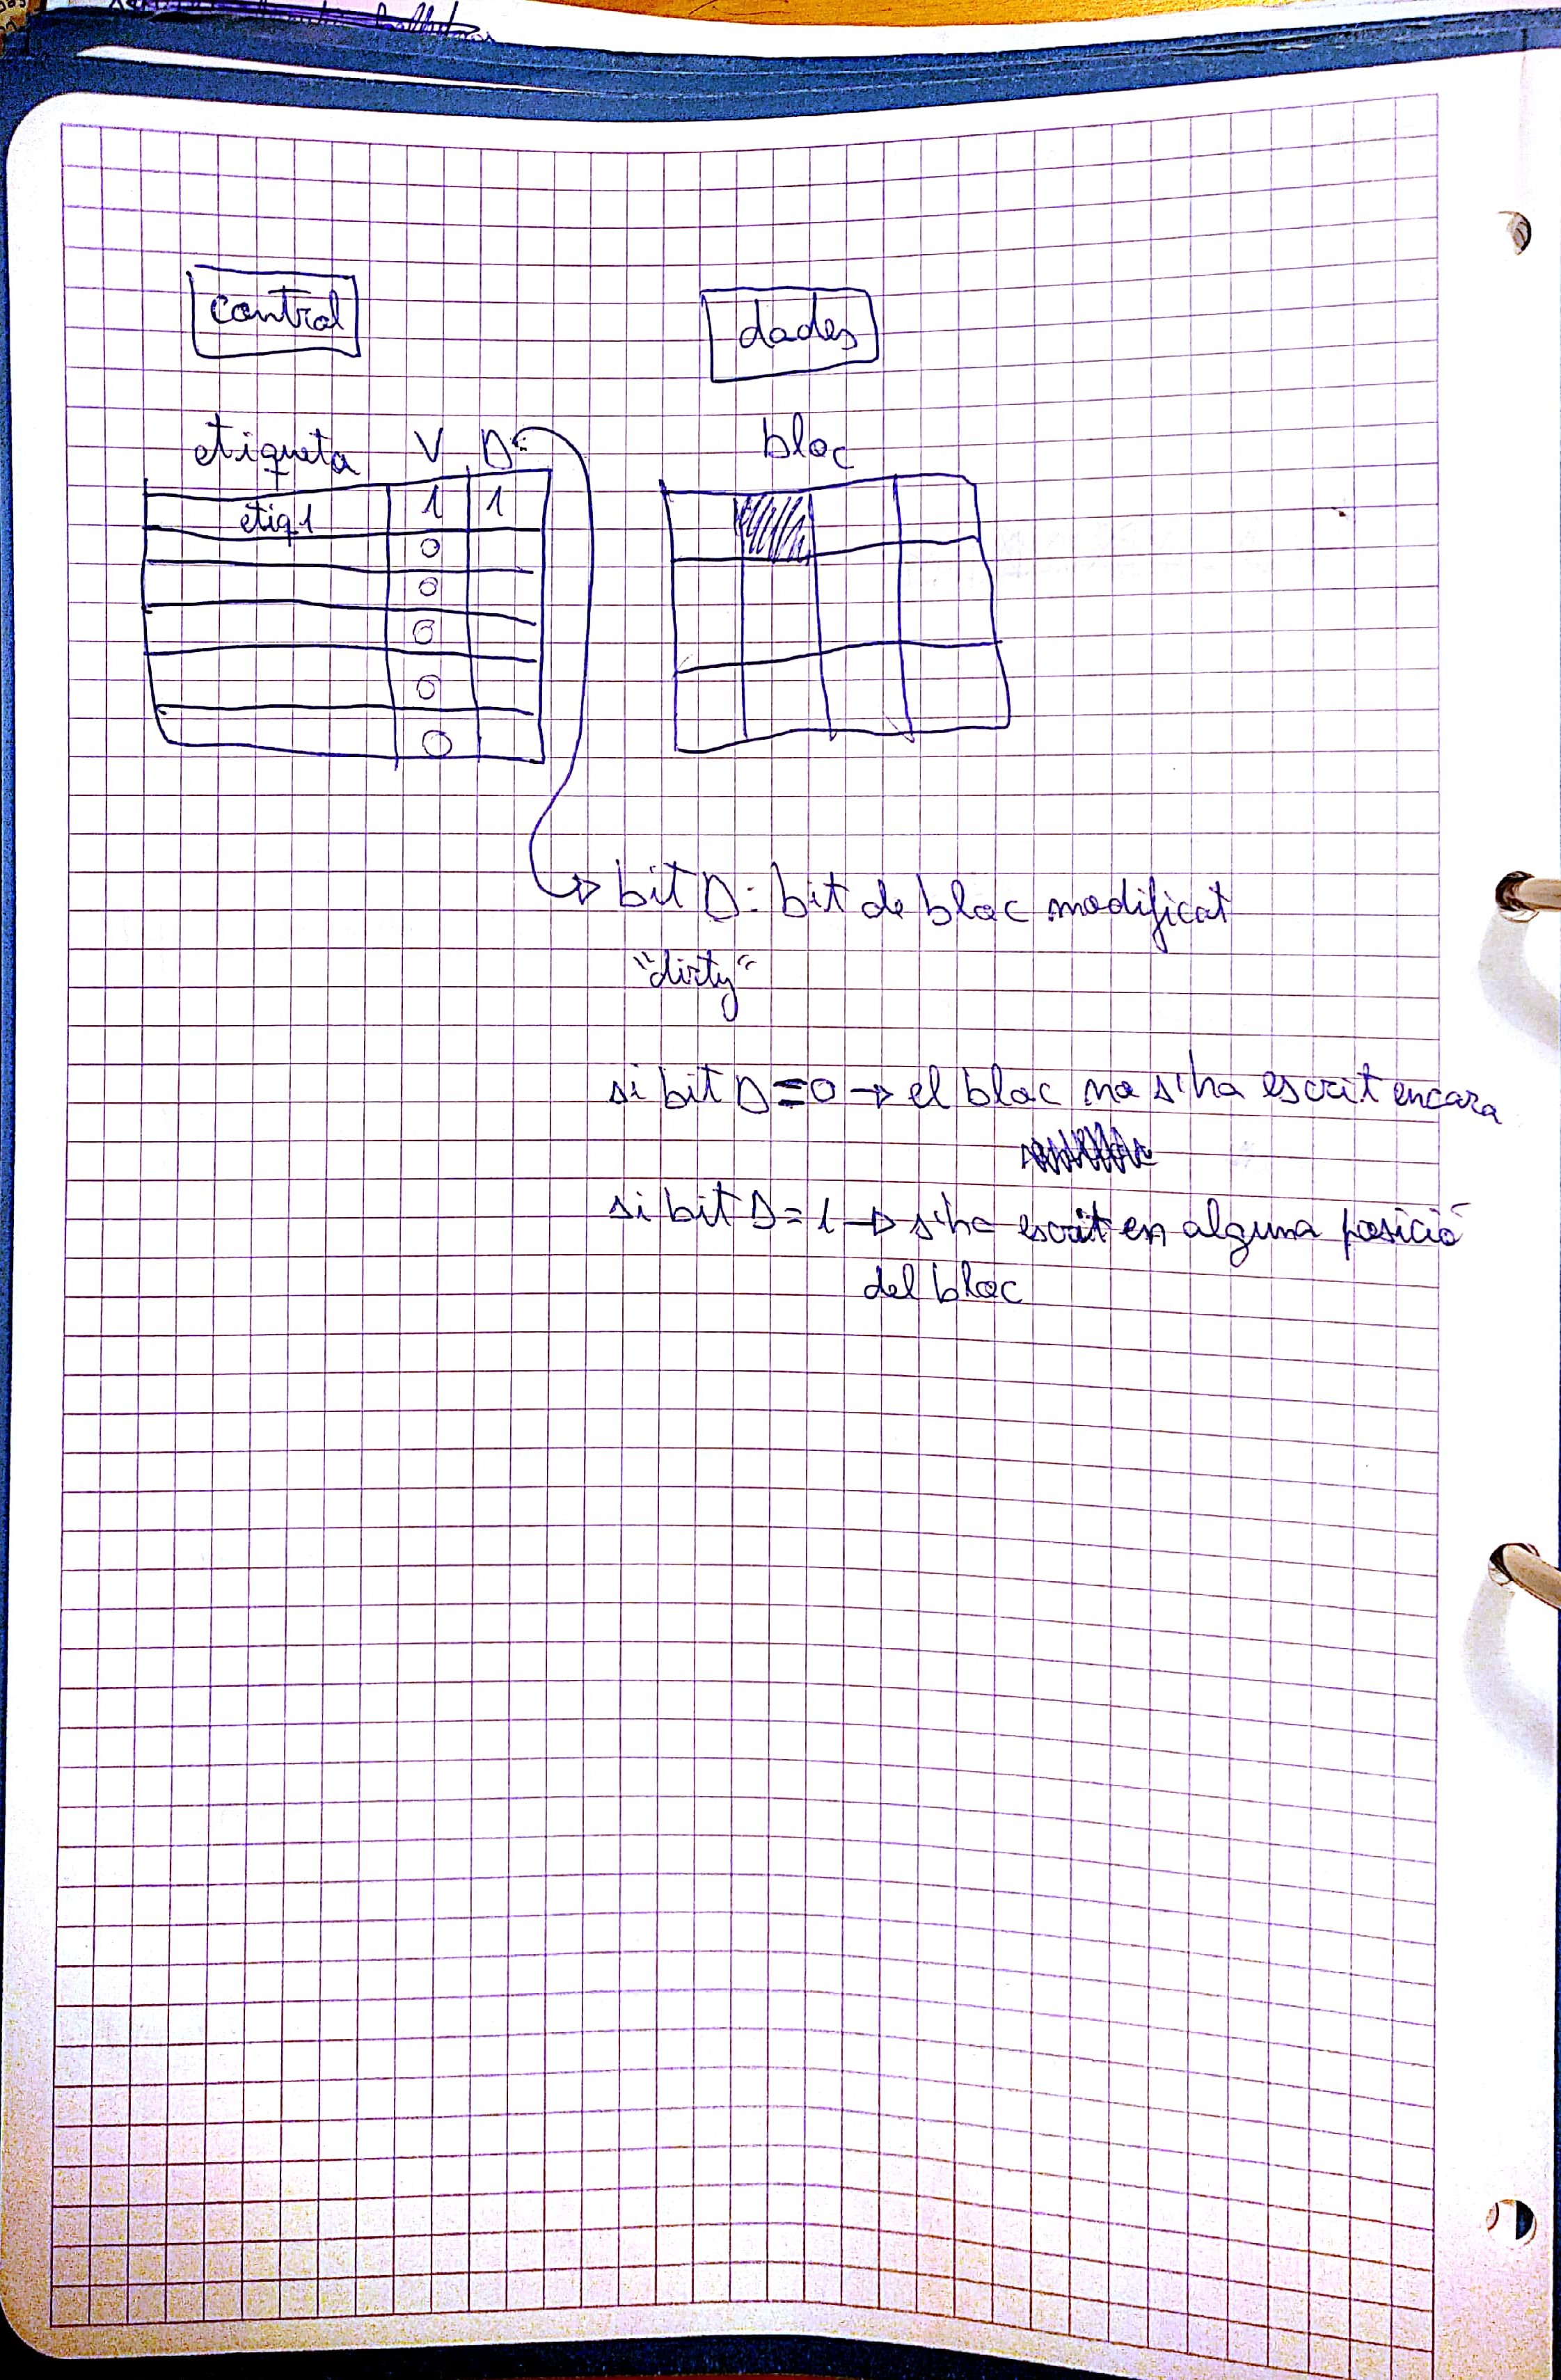 control dades
etiqueta V D bloc
etiq1 1 1
0
0
0
0
0
bit D: bit de bloc modificat
"dirty"
si bit D=0 → el bloc no s'ha escrit encara
si bit D=1 → s'ha escrit en alguna posició
del bloc